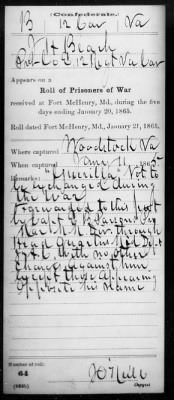 (Confederate.)
B 12 Cav Va
J H Beach
Pvt Co B 12 Regt Va Cav
Appears on a
Roll of Prisoners of War
received at Fort McHenry, Md., during the five
days ending January 20, 1865.
Roll dated Fort McHenry, Md., January 21, 1865.
Where captured Woodstock Va
When captured Jany 11 1865
Remarks: "Guerilla" Not to
be exchanged during
the War
Forwarded to this post
by Capt
through
Head Quarters
with no other
charge against him
except those appearing
opposite his name
Number of roll:
64
(639b) Copyist.